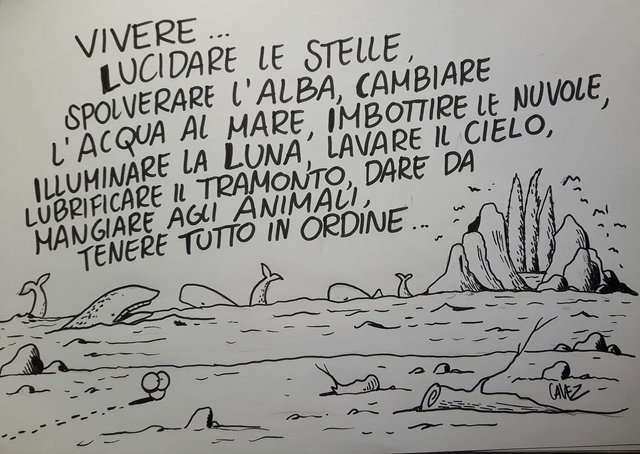 VIVERE...
LUCIDARE LE STELLE,
SPOLVERARE L'ALBA, CAMBIARE
L'ACQUA AL MARE, IMBOTTIRE LE NUVOLE,
ILLUMINARE LA LUNA, LAVARE IL CIELO,
LUBRIFICARE IL TRAMONTO, DARE DA
MANGIARE AGLI ANIMALI,
TENERE TUTTO IN ORDINE...
CAVEZ